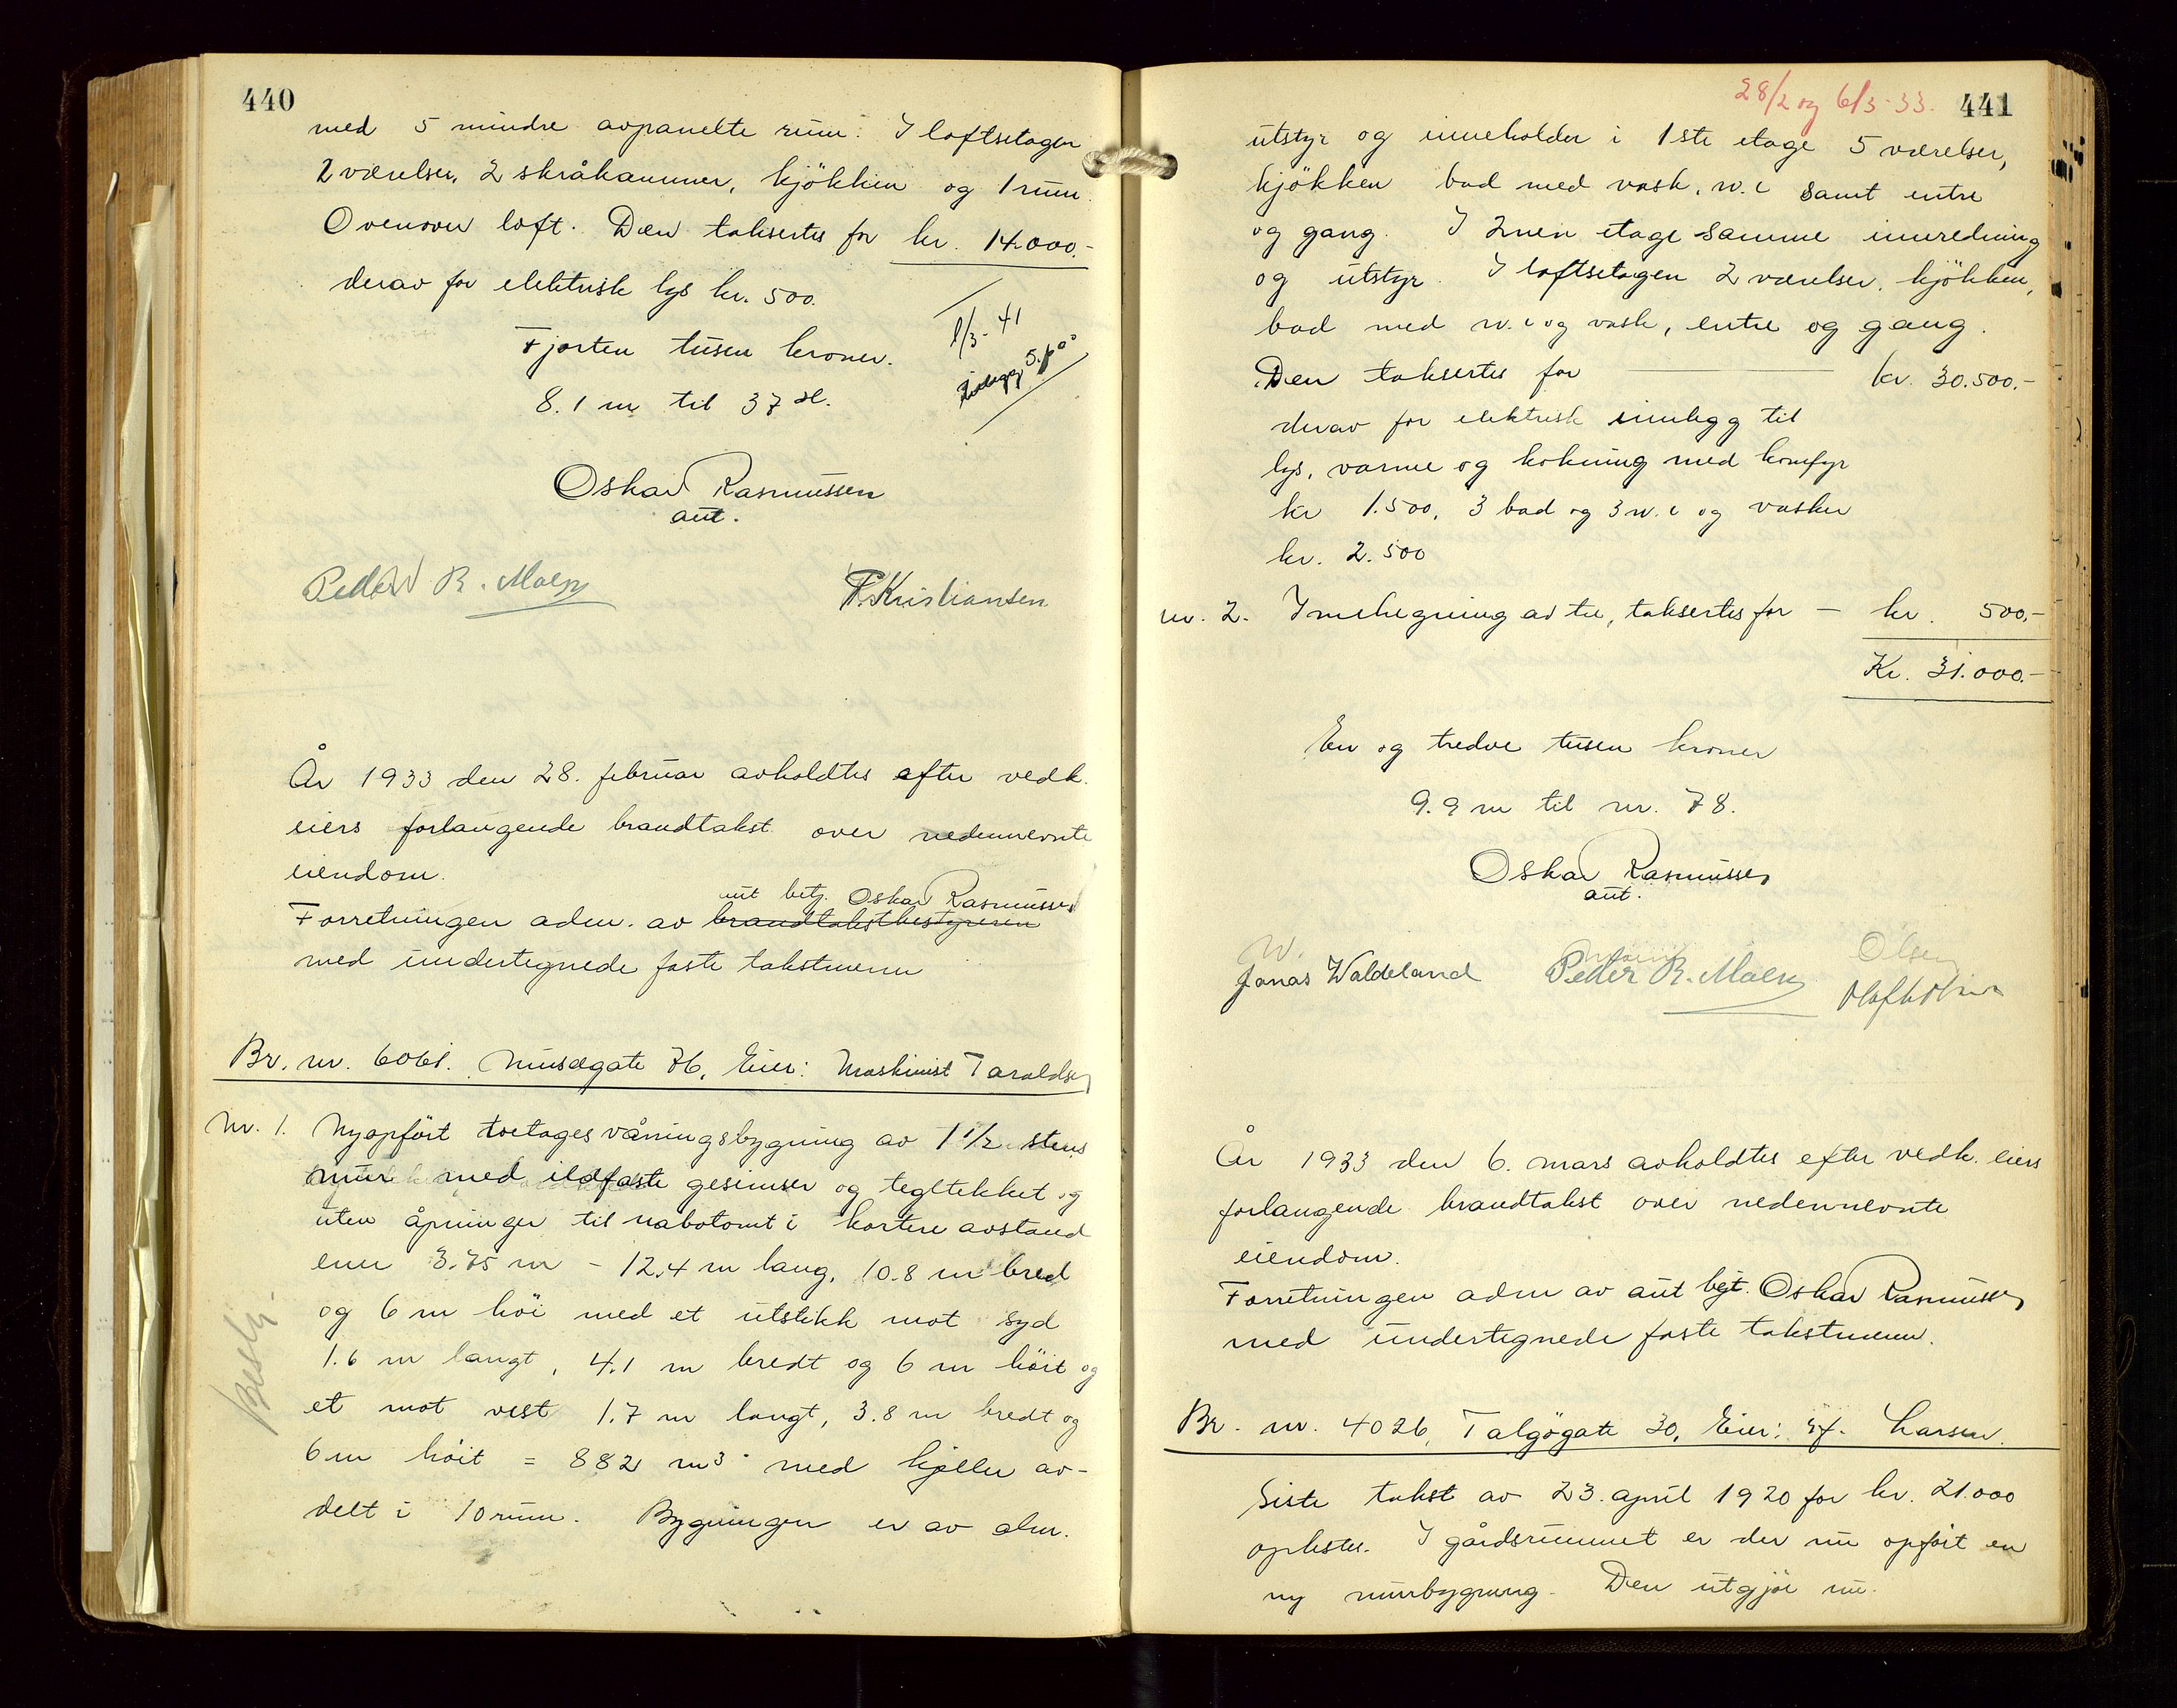 440
med 5 mindre avpanelte rum. I loftsetagen
2 værelser, 2 skråkammer, kjökken og 1 rum.
Ovenover loft. Den takseres for kr. 14.000.-
derav for elektrisk lys kr. 500.
Fjorten tusen kroner.
8.1 m til 37 
1/3-41
5.
Oskar Rasmussen
aut.
Peder R. Maly
Kristiansen
År 1933 den 28. februar avholdtes efter vedk.
eiers forlangende brandtakst over nedennevnte
eiendom.
aut betj. Oskar Rasmussen
Forretningen adm. av brandtakstbestyreren
med undertegnede faste takstmenn
Br. nr. 6061. Musegate 76, Eier: Maskinist Taraldsen
Nr. 1. Nyopfört toetages våningsbygning av 1 1/2 stens
mur med ildfaste gesimser og tegltekket og
uten åpninger til nabotomt i kortere avstand
enn 3.75 m - 12.4 m lang, 10.8 m bred
og 6 m höi med et utstikk mot syd
1.6 m langt, 4.1 m bredt og 6 m höit og
et mot vest 1.7 m langt, 3.8 m bredt og
6 m höit = 882 m3 med kjeller av-
delt i 10 rum. Bygningen er av alm.
28/2 og 6/3-33. 441
utstyr og inneholder i 1ste etage 5 værelser,
kjökken bad med vask, w.c samt entre
og gang. I 2nen etage samme innredning
og utstyr. I loftsetagen 2 værelser, kjökken,
bad med w.c og vask, entre og gang.
Den takseres for kr. 30.500.-
derav for elektrisk innlegg til
lys, varme og kokning med komfyr
kr 1.500, 3 bad og 3 w.c og vasker
kr. 2.500
nr. 2. Innhegning av tre, takseres for - kr. 500,-
Kr. 31.000.-
En og tredve tusen kroner
9.9 m til nr. 78.
Oskar Rasmussen
aut.
W. Olsen
Jonas Waldeland Peder R. Maly
År 1933 den 6. mars avholdtes efter vedk. eiers
forlangende brandtakst over nedennevnte
eiendom.
Forretningen adm av aut bgt. Oskar Rasmussen
med undertegnede faste takstmenn.
Br. nr. 4026, Talgögate 30, Eier: Larsen.
Siste takst av 23. april 1920 for kr. 21.000
opleses. I gårdsrummet er der nu opfört en
ny murbygning. Den utgjör nu.